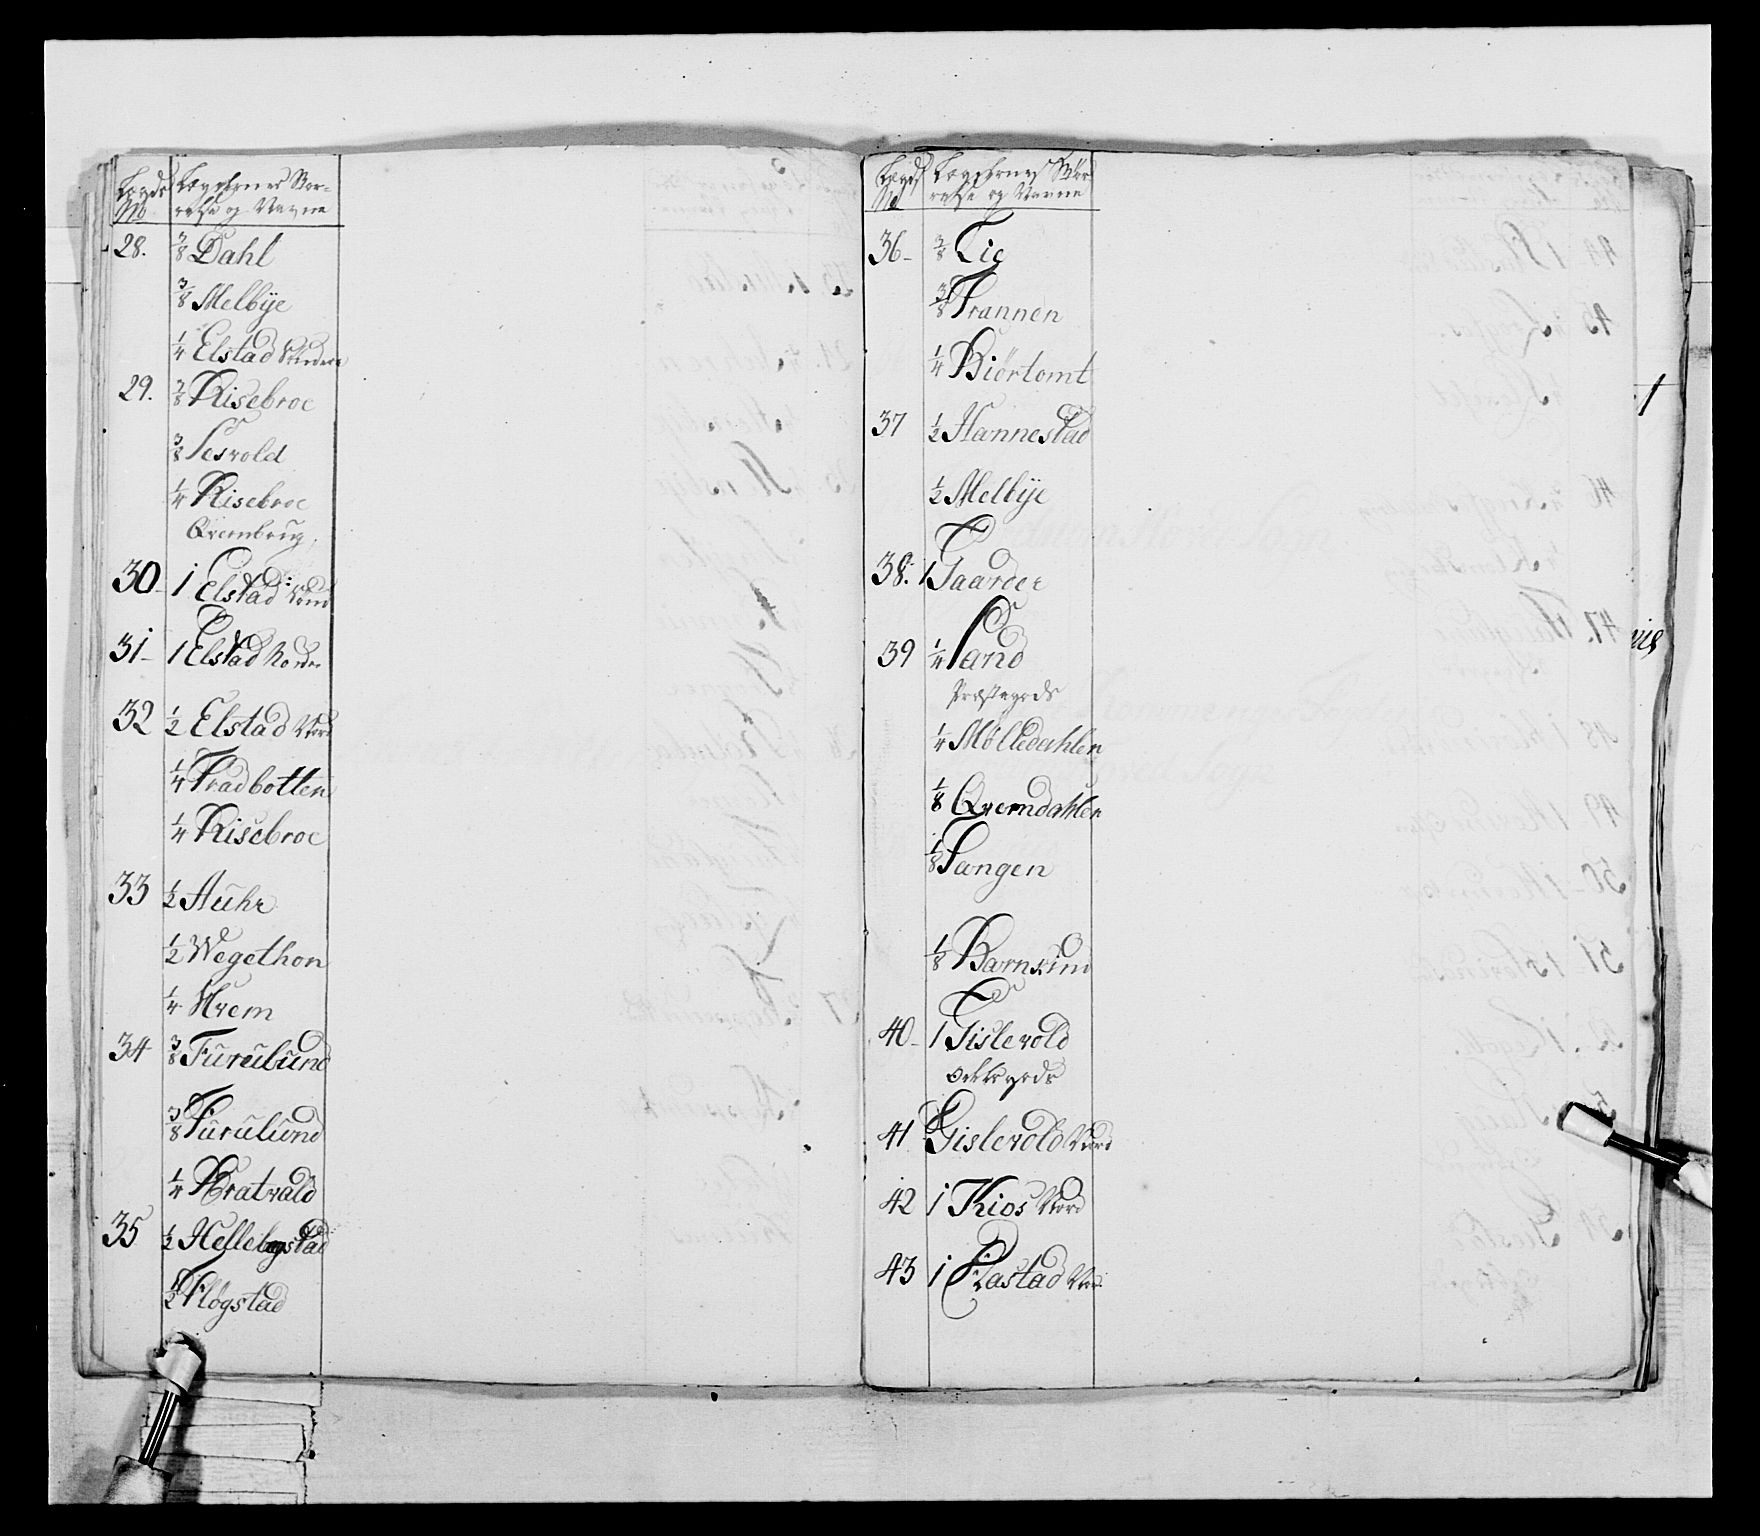 Lægds No
Lægdernes Stør-
relse og Navne
28. 3/8 Dahl
3/8 Melbÿe
1/4 Elstad Søndere
29. 3/8 Risebroe
3/8 Sesvold
1/4 Risebroe
Qvernbrug
30 1 Elstad
31 1 Elstad Nordre
32 1/2 Elstad Nord
1/4 Fradbotten
1/4 Risebroe
33 1/2 Auhr
1/2 Wegethon
1/4 Hvem
34 3/8 Furulund
3/8 Furulund
1/4 Bratvald
35 1/2 Hellebystad
1/2 Fløgstad
Lægds No
Lægdernes Stør-
relse og Navne
36 3/8 Lie
3/8 Trannen
1/4 Biørtomt
37 1/2 Hannestad
1/2 Melbÿe
38. 1 Gaarder
39 1/4 Sand
Præstegods
1/4 Mølledahlen
1/8 Qverndahlen
1/8 Sangen
1/8 Barnkind
40 1 Gislevold
41 Gislevold Nord
42 1 Kios Nord
43 1 Rastad